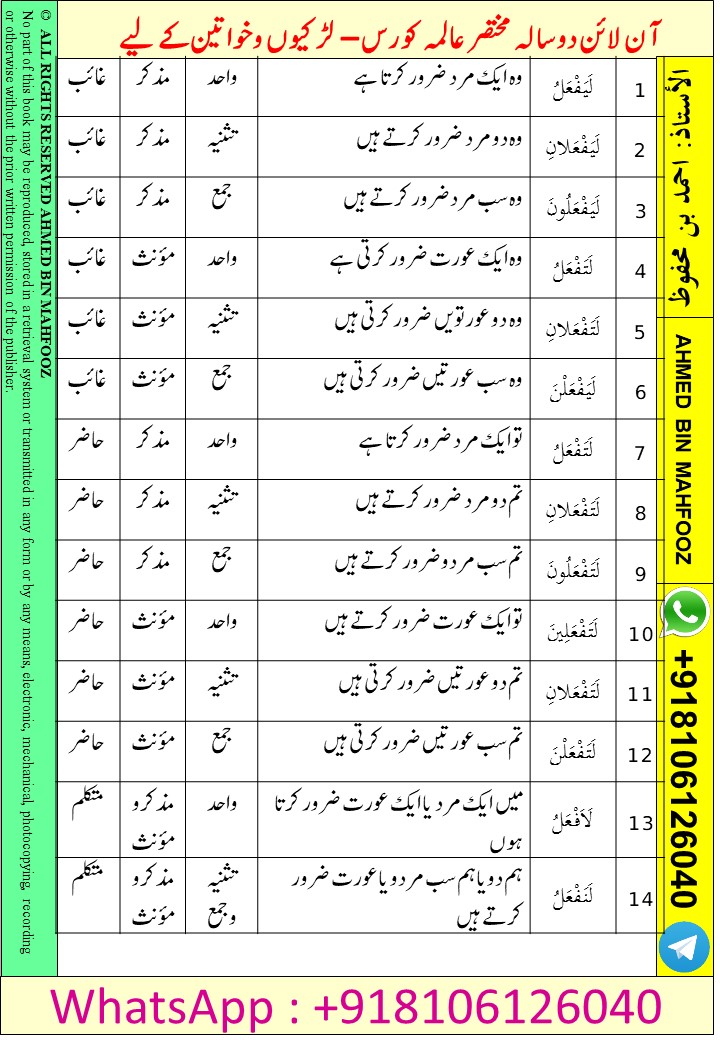 آن لائن دو سالہ مختصر عالمہ کورس – لڑکیوں و خواتین کے لیے
1 لَيَفْعَلُ وہ ایک مرد ضرور کرتا ہے واحد مذکر غائب
2 لَيَفْعَلانِ وہ دو مرد ضرور کرتے ہیں تثنیہ مذکر غائب
3 لَيَفْعَلُونَ وہ سب مرد ضرور کرتے ہیں جمع مذکر غائب
4 لَتَفْعَلُ وہ ایک عورت ضرور کرتی ہے واحد مؤنث غائب
5 لَتَفْعَلانِ وہ دو عورتویں ضرور کرتی ہیں تثنیہ مؤنث غائب
6 لَيَفْعَلْنَ وہ سب عورتیں ضرور کرتی ہیں جمع مؤنث غائب
7 لَتَفْعَلُ تو ایک مرد ضرور کرتا ہے واحد مذکر حاضر
8 لَتَفْعَلانِ تم دو مرد ضرور کرتے ہیں تثنیہ مذکر حاضر
9 لَتَفْعَلُونَ تم سب مردو ضرور کرتے ہیں جمع مذکر حاضر
10 لَتَفْعَلِينَ تو ایک عورت ضرور کرتے ہیں واحد مؤنث حاضر
11 لَتَفْعَلانِ تم دو عورتیں ضرور کرتی ہیں تثنیہ مؤنث حاضر
12 لَتَفْعَلْنَ تم سب عورتیں ضرور کرتی ہیں جمع مؤنث حاضر
13 لَاَفْعَلُ میں ایک مرد یا ایک عورت ضرور کرتا واحد مذکر و متکلم
ہوں مؤنث
14 لَنَفْعَلُ ہم دو یا ہم سب مردو یا عورت ضرور تثنیہ مذکر و متکلم
کرتے ہیں و جمع مؤنث
الأستاذ: احمد بن محفوظ
AHMED BIN MAHFOOZ
+918106126040
© ALL RIGHTS RESERVED AHMED BIN MAHFOOZ
No part of this book may be reproduced, stored in a retrieval system or transmitted in any form or by any means, electronic, mechanical, photocopying, recording
or otherwise without the prior written permission of the publisher.
WhatsApp : +918106126040